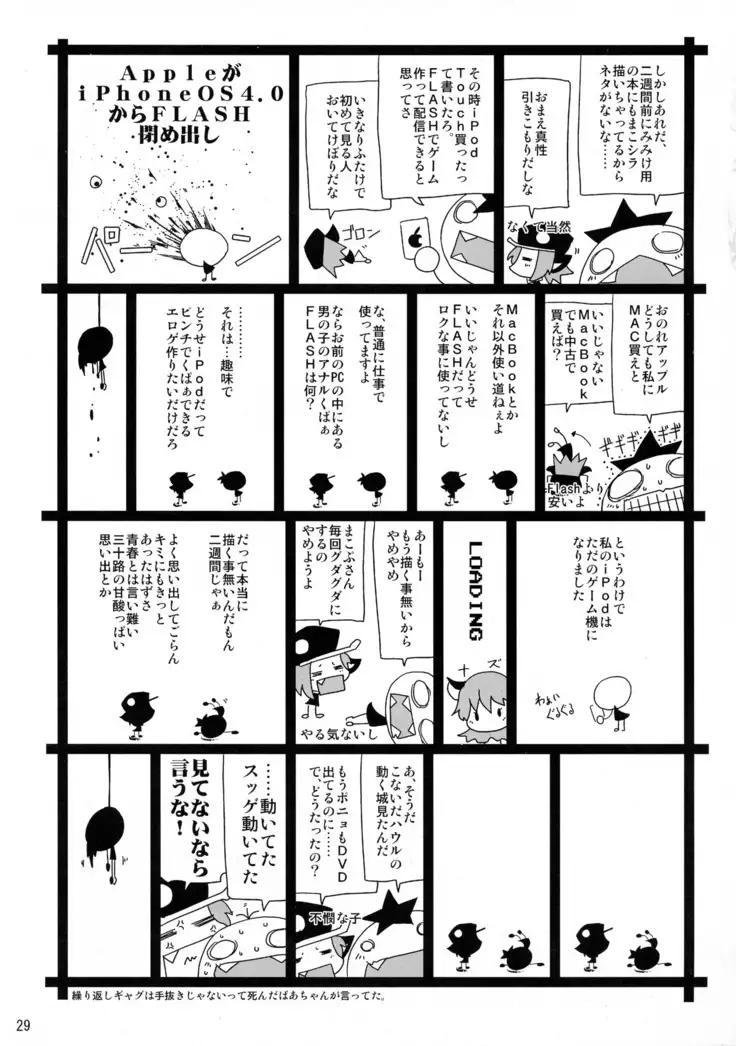 しかしあれだ、
二週間前にみみけ用
の本にもまこシラ
描いちゃってるから
ネタがないな…
おまえ真性
引きこもりだしな
なくて当然
その時iPod
Touch買ったっ
て書いたろ。
FLASHでゲーム
作って配信できると
思ってさ
いきなりふたけで
初めて見る人
おいてけぼりだな
ゴロン
Appleが
iPhoneOS4.0
からFLASH
閉め出し
パーン
おのれアップル
どうしても私に
MAC買えと
いいじゃない
MacBook
でも中古で
買えば?
ギギギギギ
Flashより
安いよ
MacBookとか
それ以外使い道ねぇよ
いいじゃんどうせ
FLASHだって
ロクな事に使ってないし
な、普通に仕事で
使ってますよ
ならお前のPCの中にある
男の子のアナルくぱぁ
FLASHは何?
…………
それは…趣味で
どうせiPodだって
ピンチでくぱぁできる
エロゲ作りたいだけだろ
というわけで
私のiPodは
ただのゲーム機に
なりました
わぁい
ぐるぐる
LOADING
ズ
あーもー
もう描く事無いから
やめやめ
まこぷさん
毎回グダグダに
するの
やめようよ
やる気ないし
だって本当に
描く事無いんだもん
二週間じゃぁ
よく思い出してごらん
キミにもきっと
あったはずさ
青春とは言い難い
三十路の甘酸っぱい
思い出とか
あ、そうだ
こないだハウルの
動く城見たんだ
もうポニョもDVD
出てるのに……
で、どうたったの?
不憫な子
……動いてた
スッゲ動いてた
見てないなら
言うな!
繰り返しギャグは手抜きじゃないって死んだばあちゃんが言ってた。
29